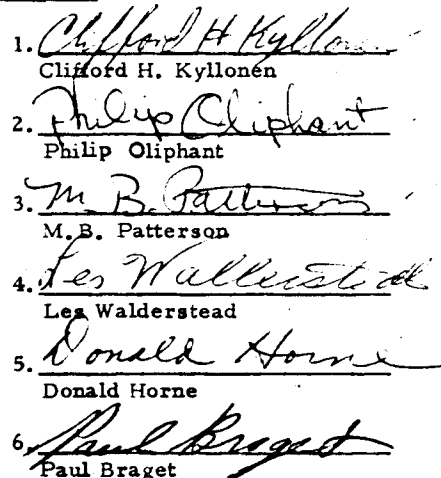 1. Clifford H Kyllonen
Clifford H. Kyllonen
2. Philip Oliphant
Philip Oliphant
3. M. B. Patterson
M.B. Patterson
4. Les Wallerstedt
Les Walderstead
5. Donald Horne
Donald Horne
6. Paul Braget
Paul Braget